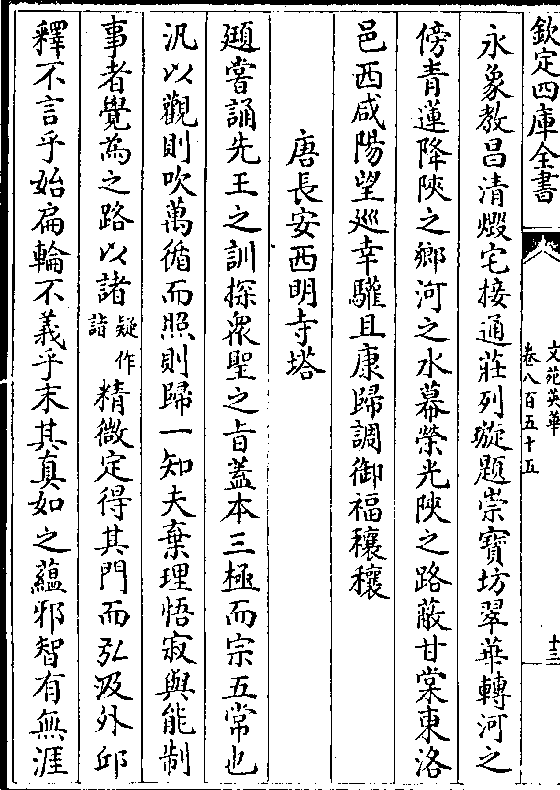 欽定四庫全書
文苑英華
卷八百五十五
十三
永象教昌清燬宅接通莊列璇題崇寶坊翠華轉河之
傍青蓮降陜之鄉河之水幕榮光陜之路蔽甘棠東洛
邑西咸陽望巡幸驩且康歸調御福穰穰
唐長安西明寺塔
頲嘗誦先王之訓探衆聖之旨蓋本三極而宗五常也
汎以觀則吹萬循而照則歸一知夫棄理悟寂與能制
事者覺為之路以諸疑作詣精微定得其門而弘汲外邱
釋不言乎始扁輪不義乎末其真如之蘊邪智有無涯